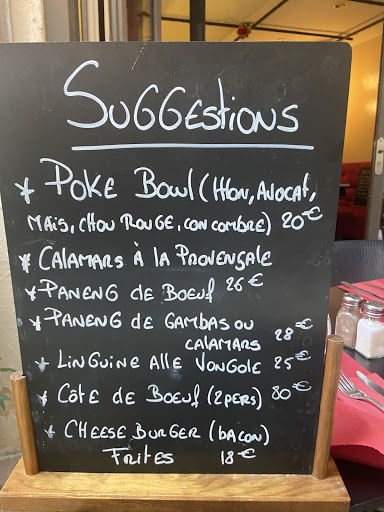 SUGGESTIONS
* POKE BOWL (THON, AVOCAT,
MAÏS, CHOU ROUGE, CONCOMBRE) 20€
* CALAMARS À LA PROVENÇALE
* PANENG DE BOEUF 26€
* PANENG DE GAMBAS OU
CALAMARS 28€
* LINGUINE ALLE VONGOLE 25€
* CÔTE DE BOEUF (2PERS) 80€
* CHEESE BURGER (BACON)
FRITES 18€